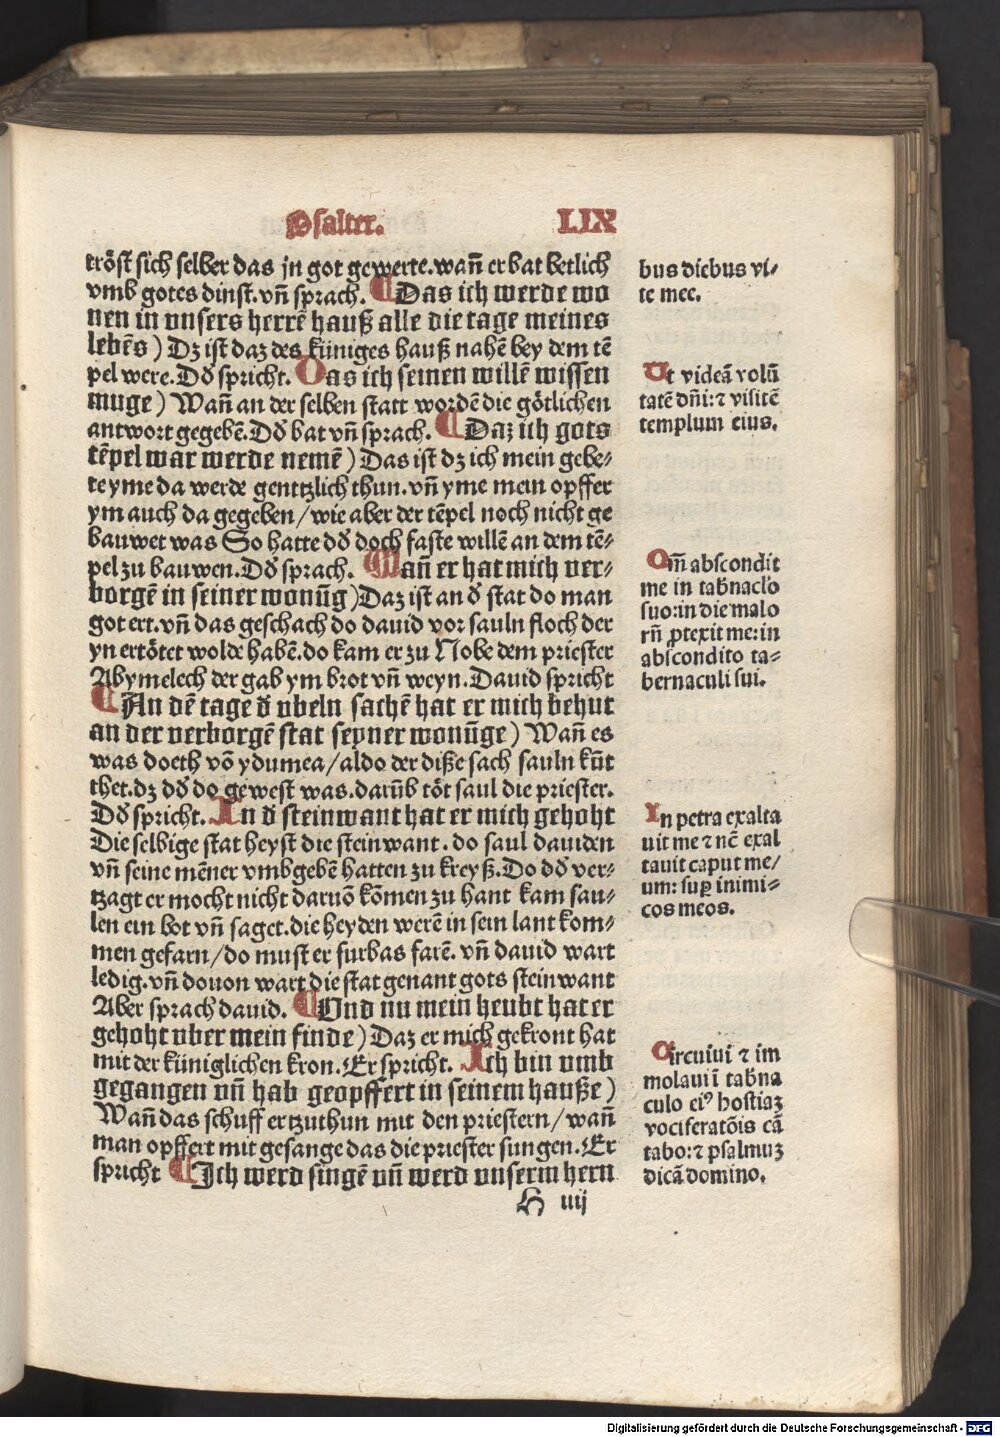 Psalter. LIX
tröst sich selber das jn got gewerte. wañ er bat betlich
vmb gotes dinst. vñ sprach. ¶ Das ich werde wo
nen in vnsers herrē hauß alle die tage meines
lebēs) Dz ist daz des küniges hauß nahē bey dem tē
pel were. Dđ spricht. Das ich seinen willē wissen
muge) Wañ an der selben statt wordē die götlichen
antwort gegebē. Dđ bat vñ sprach. ¶ Daz ich gots
tēpel war werde nemē) Das ist dz ich mein gebe⸗
te yme da werde gentzlich thun. vñ yme mein opffer
ym auch da gegeben / wie aber der tēpel noch nicht ge
bauwet was So hatte dđ doch faste willē an dem tē⸗
pel zu bauwen. Dđ sprach. Wañ er hat mich ver⸗
borgē in seiner wonūg) Daz ist an đ stat do man
got ert. vñ das geschach do dauid vor sauln floch der
yn ertötet wolde habē. do kam er zu Nobe dem priester
Abymelech der gab ym brot vñ weyn. Dauid spricht
¶ An dē tage đ vbeln sachē hat er mich behut
an der verborgē stat seyner wonūge) Wañ es
was doeth vō ydumea / aldo der diße sach sauln kūt
thet. dz dđ do gewest was. darūb töt saul die priester.
Dđ spricht. In đ steinwant hat er mich gehoht
Die selbige stat heyst die steinwant. do saul dauiden
vñ seine mēner vmbgeben hatten zu kreyß. Do dđ ver⸗
tzagt er mocht nicht daruō kōmen zu hant kam sau⸗
len ein bot vñ saget. die heyden werē in sein lant kom⸗
men gefarn / do must er furbas farē. vñ dauid wart
ledig. vñ douon wart die stat genant gots steinwant
Aber sprach dauid. ¶ Vnd nu mein heubt hat er
gehoht vber mein finde) Daz er mich gekront hat
mit der küniglichen kron. Er spricht. Ich bin vmb
gegangen vñ hab geopffert in seinem hauße)
Wañ das schuff er tzuthun mit den priestern / wañ
man opffert mit gesange das die priester sungen. Er
spricht ¶ Ich werd singē vñ werd vnserm hern
H iiij
bus diebus vi⸗
te mee.
Ut videā volū
tatē dñi: ⁊ visitē
templum eius.
Qm̄ abscondit
me in tab̄nacl̓o
suo: in die malo
rū ꝓtexit me: in
abscondito ta⸗
bernaculi sui.
In petra exalta
uit me ⁊ nc̄ exal
tauit caput me⸗
um: suꝑ inimi⸗
cos meos.
Circuiui ⁊ im
molaui ī tab̄na
culo eiꝰ hostiaꝫ
vociferatōis cā
tabo: ⁊ psalmuꝫ
dicā domino.
Digitalisierung gefördert durch die Deutsche Forschungsgemeinschaft - DFG